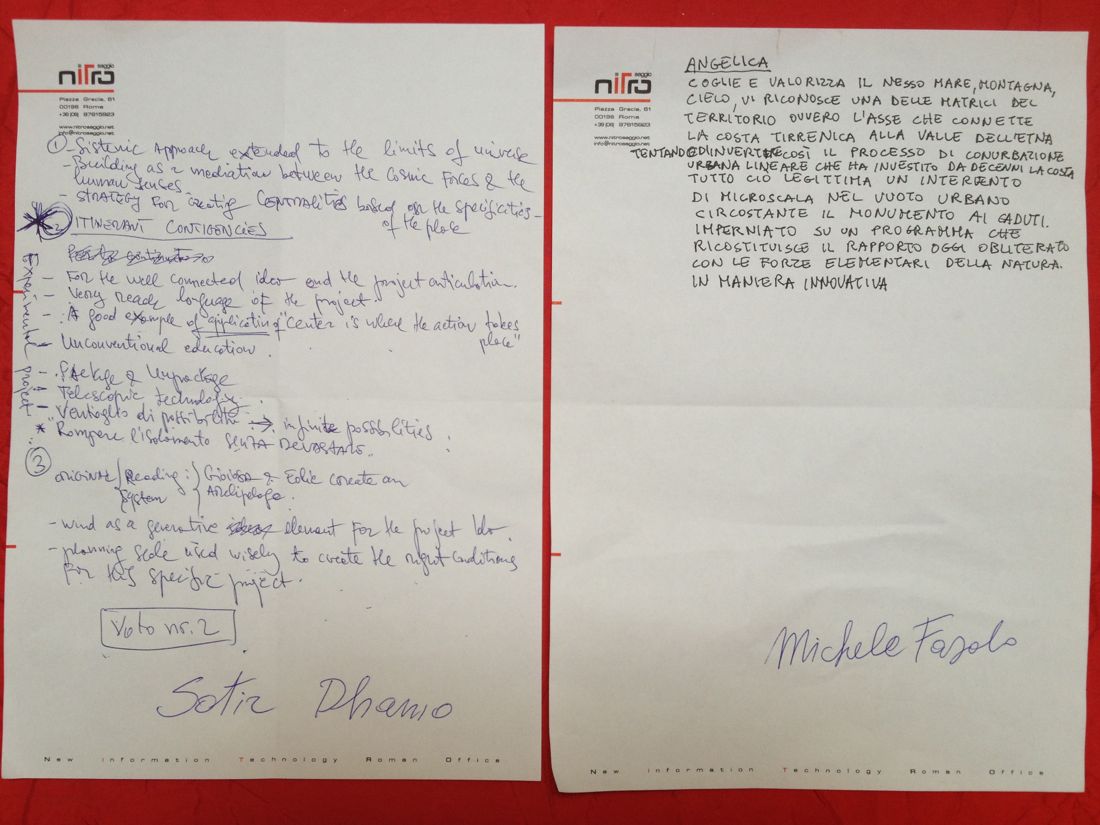 nitro
saggio
Piazza Grecia, 61
00196 Roma
www.nitrosaggio.net
info@nitrosaggio.net
① Sistemic Approach extended to the limits of universe
- Building as a mediation between the Cosmic Forces & the
human senses -
- STRATEGY For creating CENTRALITIES based on the specificities -
of the place
2 ITINERANT CONTIGENCIES
Experimental project
- For the well connected idea and the project articulation.
- Very ready language of the project.
- A good example of application of "Center is where the action takes
place"
- Unconventional education.
- Package & Unpackage
- Telescopic technology.
- Ventaglio di possibilità → infinite possibilities
* "Rompere l'isolamento SENZA DEVASTARLO.
③
ORIGINAL Reading: Gioiosa & Eolie create an
System Archipelago.
- wind as a generative element For the project Idea.
- planning scale used wisely to create the right conditions
For this specific project.
Voto nr. 2
Sotir Dhamo
New Information Technology Roman Office
nitro
saggio
Piazza Grecia, 61
00196 Roma
www.nitrosaggio.net
info@nitrosaggio.net
ANGELICA
COGLIE E VALORIZZA IL NESSO MARE, MONTAGNA,
CIELO, VI RICONOSCE UNA DELLE MATRICI DEL
TERRITORIO OVVERO L'ASSE CHE CONNETTE
LA COSTA TIRRENICA ALLA VALLE DELL'ETNA
TENTANDO ED INVERTIRE COSÌ IL PROCESSO DI CONURBAZIONE
URBANA LINEARE CHE HA INVESTITO DA DECENNI LA COSTA
TUTTO CIÒ LEGITTIMA UN INTERVENTO
DI MICROSCALA NEL VUOTO URBANO
CIRCOSTANTE IL MONUMENTO AI CADUTI.
IMPERNIATO SU UN PROGRAMMA CHE
RICOSTITUISCE IL RAPPORTO OGGI OBLITERATO
CON LE FORZE ELEMENTARI DELLA NATURA.
IN MANIERA INNOVATIVA
Michele Fasolo
New Information Technology Roman Office